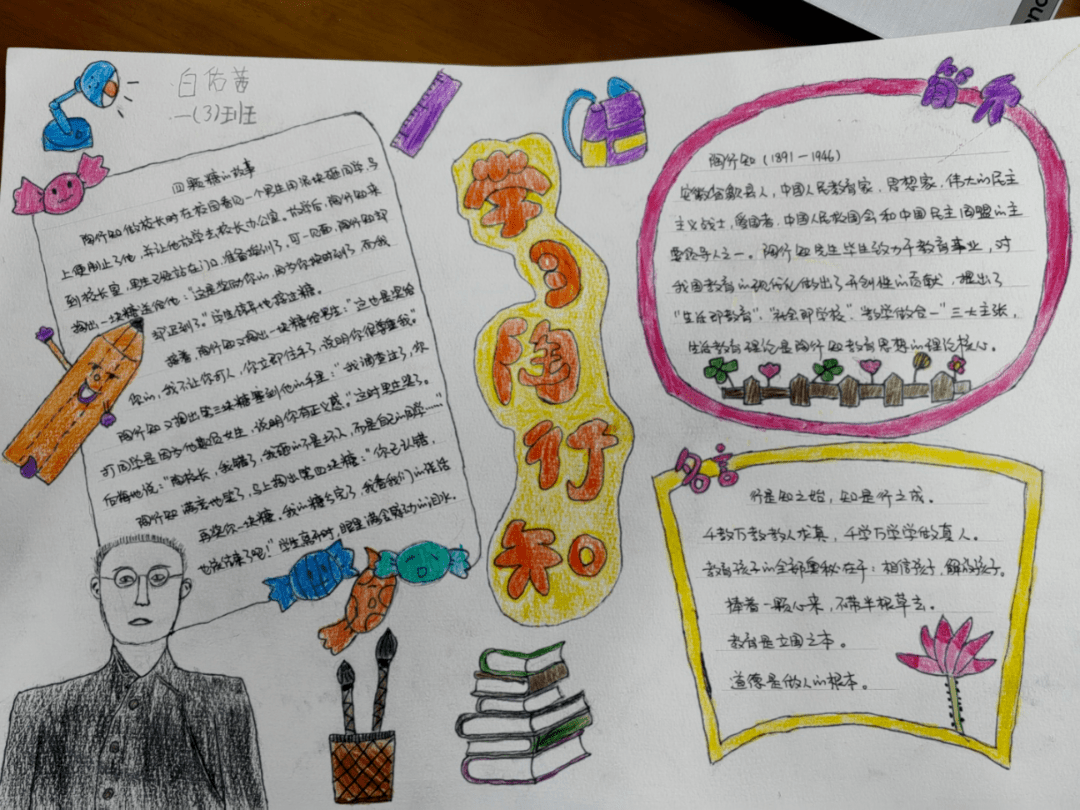 白佑茜
一(3)班
四颗糖的故事
陶行知做校长时在校园看到一个男生用泥块砸同学，马
上便制止了他，并让他放学去校长办公室。放学后，陶行知来
到校长室，男生已经站在门口，准备挨训了，可一见面，陶行知却
掏出一块糖送给他："这是奖励你的，因为你按时到了，而我
却迟到了。"学生惊异地接过糖。
接着，陶行知又掏出一块糖给男生："这也是奖给
你的，我不让你打人，你立即住手了，说明你很尊重我。"
陶行知又掏出第三块糖塞到他手里："我调查过了，你
打同学是因为他欺负女生，说明你有正义感。"这时男生哭了。
后悔地说："陶校长，我错了，我砸的不是坏人，而是自己的同学……"
陶行知满意地笑了，马上掏出第四块糖："你已认错，
再奖你一块糖。我的糖分完了，我看我们的谈话
也该结束了吧！"学生离开时，眼里满含感动的泪水。
学习陶行知
简介
陶行知（1891—1946）
安徽省歙县人，中国人民教育家，思想家，伟大的民主
主义战士，爱国者，中国人民救国会和中国民主同盟的主
要领导人之一。陶行知先生毕生致力于教育事业，对
我国教育的现代化做出了开创性的贡献，提出了
"生活即教育"、"社会即学校"、"教学做合一"三大主张，
生活教育理论是陶行知教育思想的理论核心。
名言
行是知之始，知是行之成。
千教万教教人求真，千学万学学做真人。
教育孩子的全部奥秘在于：相信孩子，解放孩子。
捧着一颗心来，不带半根草去。
教育是立国之本。
道德是做人的根本。